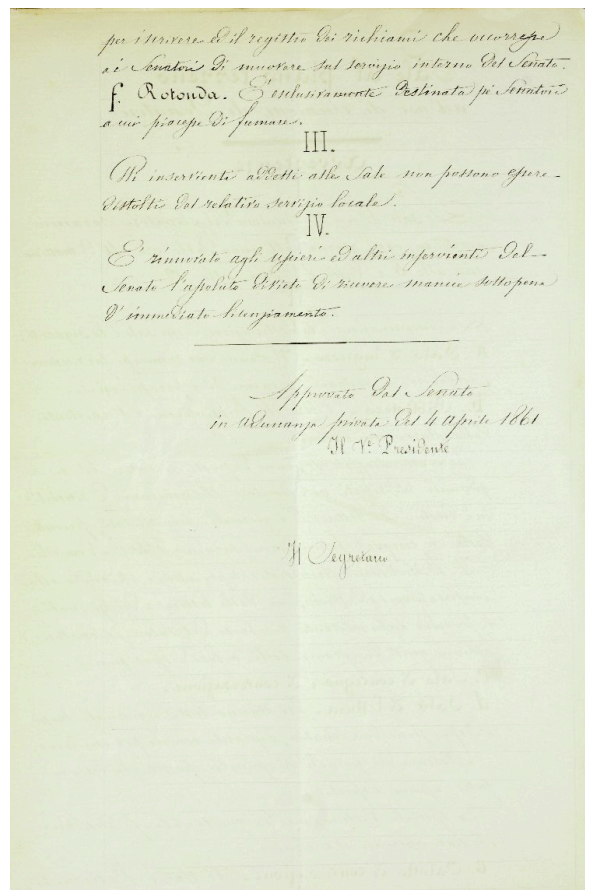 per iscrivere ed il registro dei richiami che occorresse
ai Senatori di muovere sul servizio interno del Senato.
f. Rotonda. È esclusivamente destinata pi Senatori
a cui piacesse di fumare.
III.
Gli inservienti addetti alle Sale non possono essere
distolti dal relativo servizio locale.
IV.
È rinnovato agli uscieri ed altri inservienti del
Senato l'assoluto divieto di ricevere mancie sotto pena
d'immediato licenziamento.
Approvato dal Senato
in adunanza privata del 4 Aprile 1861
Il V.e Presidente
Il Segretario